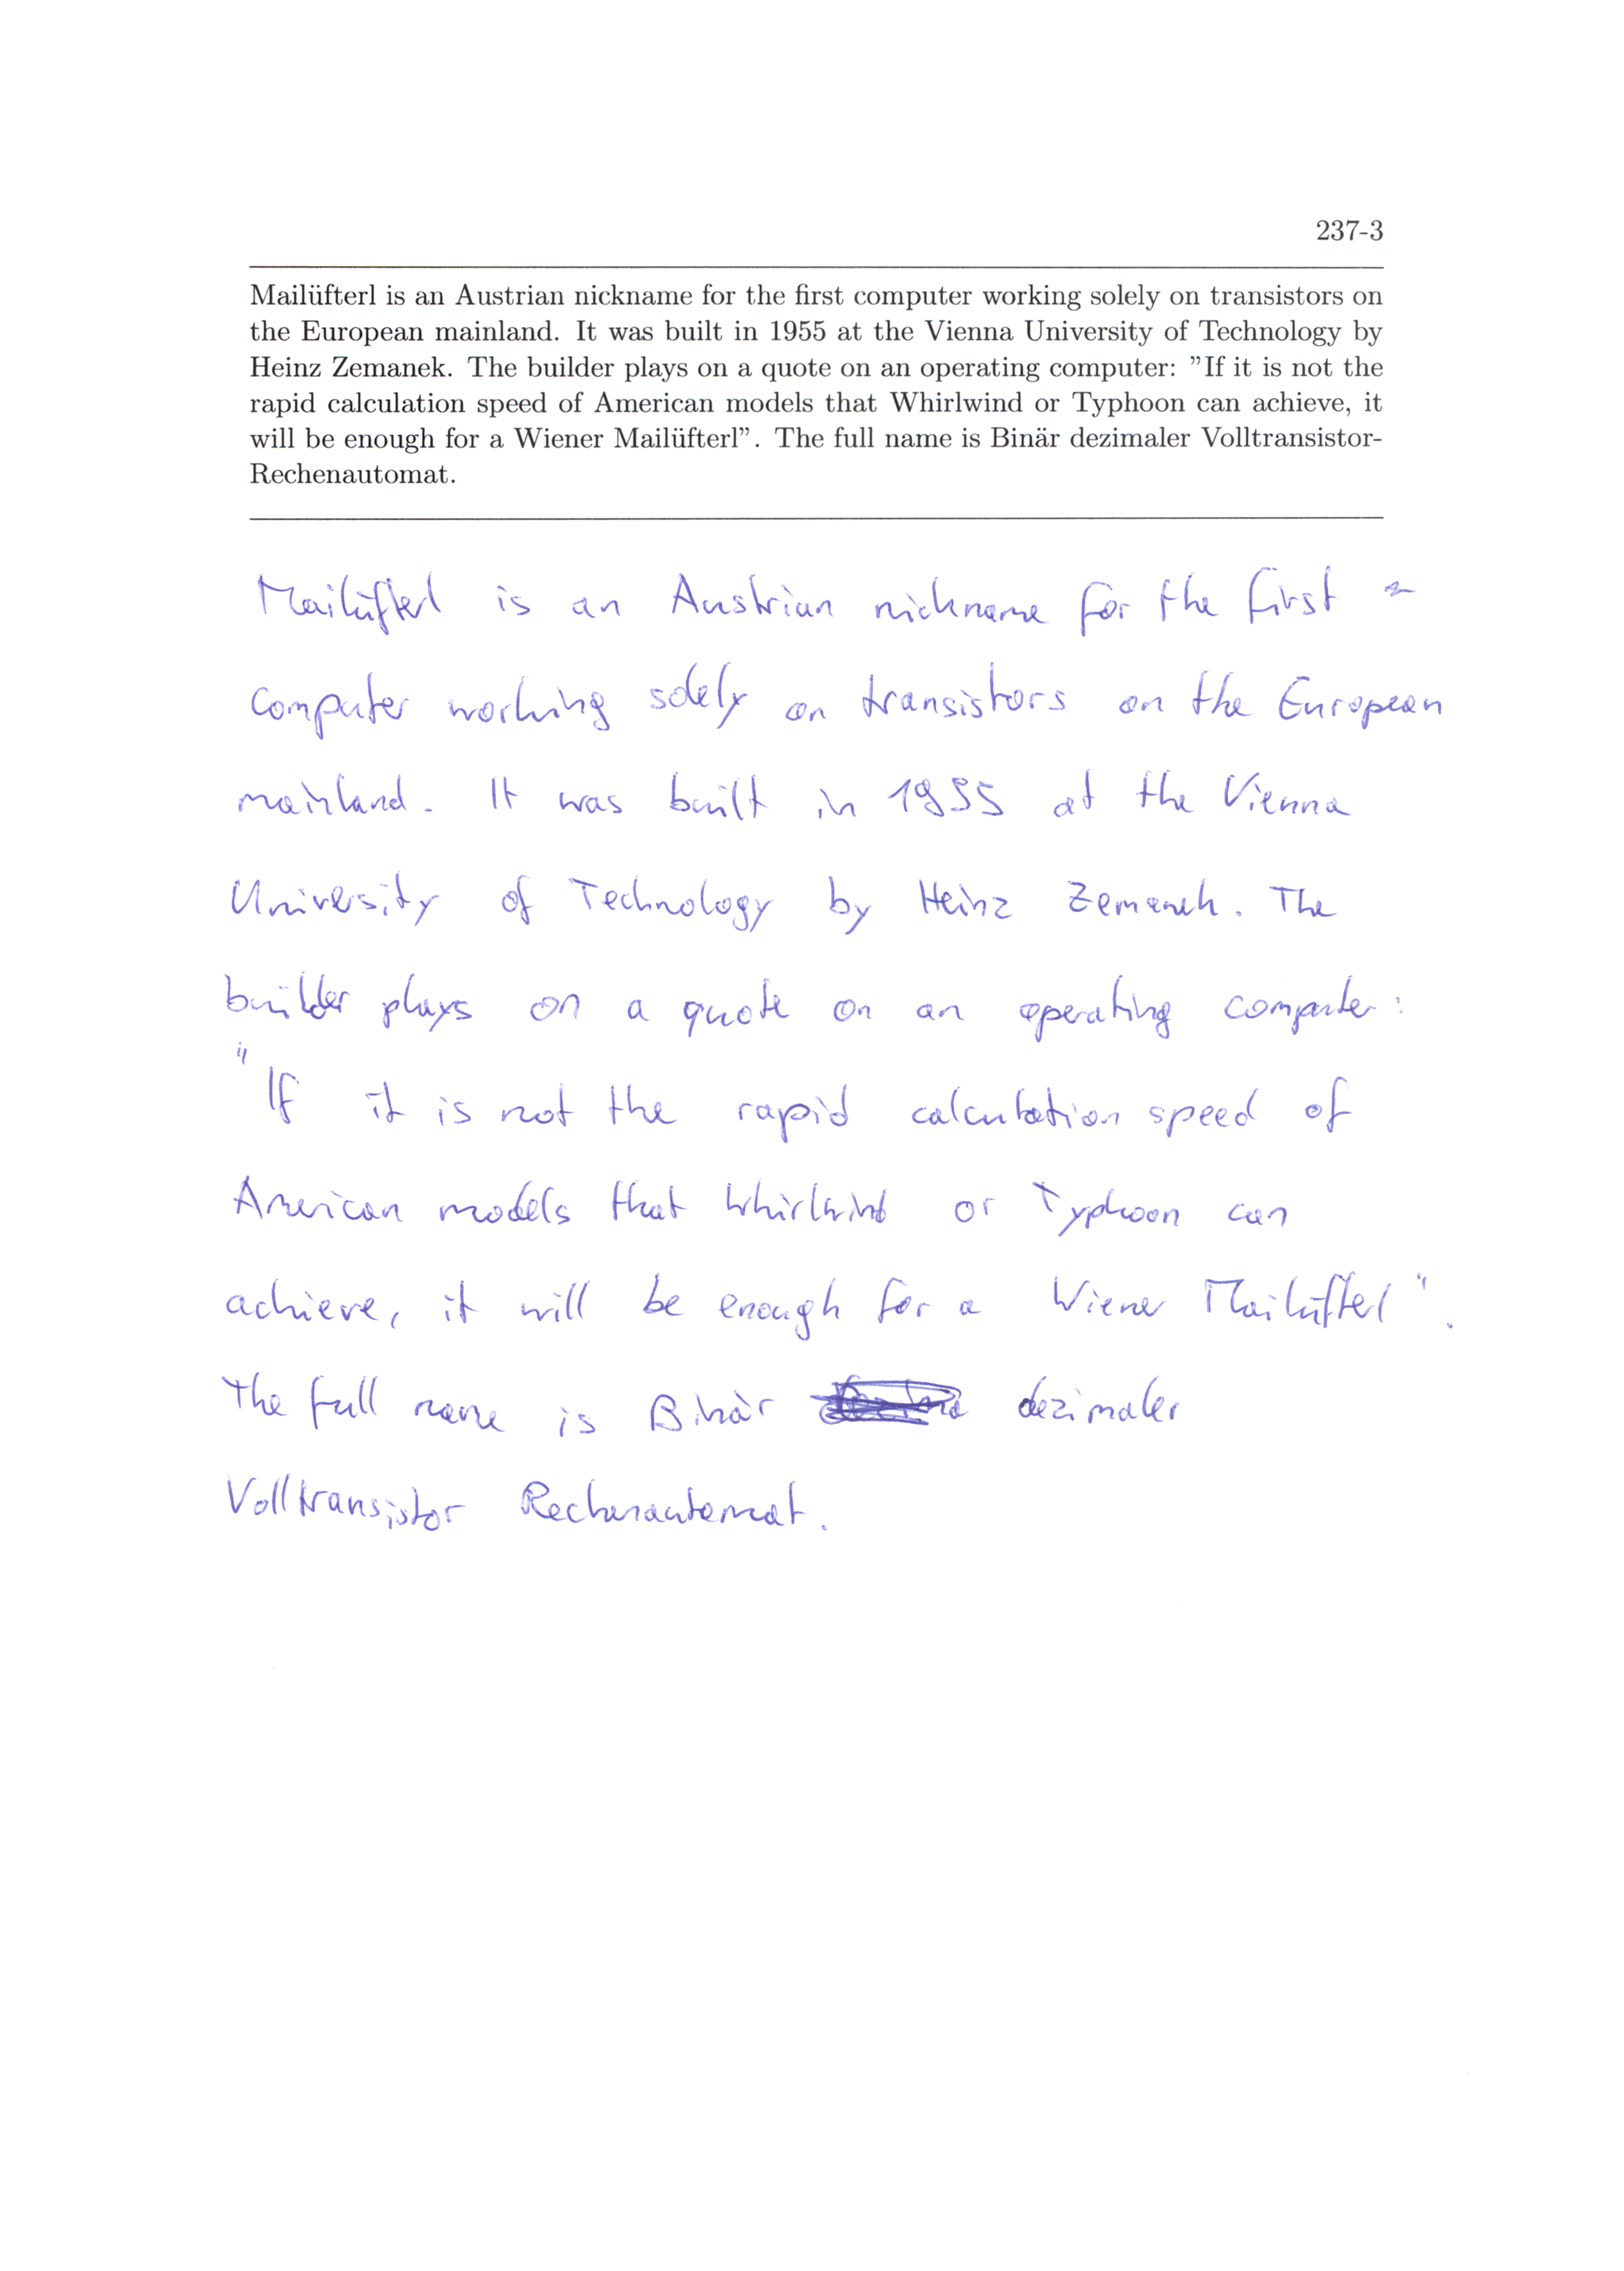 237-3
Mailüfterl is an Austrian nickname for the first computer working solely on transistors on
the European mainland. It was built in 1955 at the Vienna University of Technology by
Heinz Zemanek. The builder plays on a quote on an operating computer: ”If it is not the
rapid calculation speed of American models that Whirlwind or Typhoon can achieve, it
will be enough for a Wiener Mailüfterl”. The full name is Binär dezimaler Volltransistor-
Rechenautomat.
Mailüfterl is an Austrian nickname for the first
computer working solely on transistors on the European
mainland. It was built in 1955 at the Vienna
University of Technology by Heinz Zemanek. The
builder plays on a quote on an operating computer:
"If it is not the rapid calculation speed of
American models that Whirlwind or Typhoon can
achieve, it will be enough for a Wiener Mailüfterl".
The full name is Binär dezimaler
Volltransistor Rechenautomat.